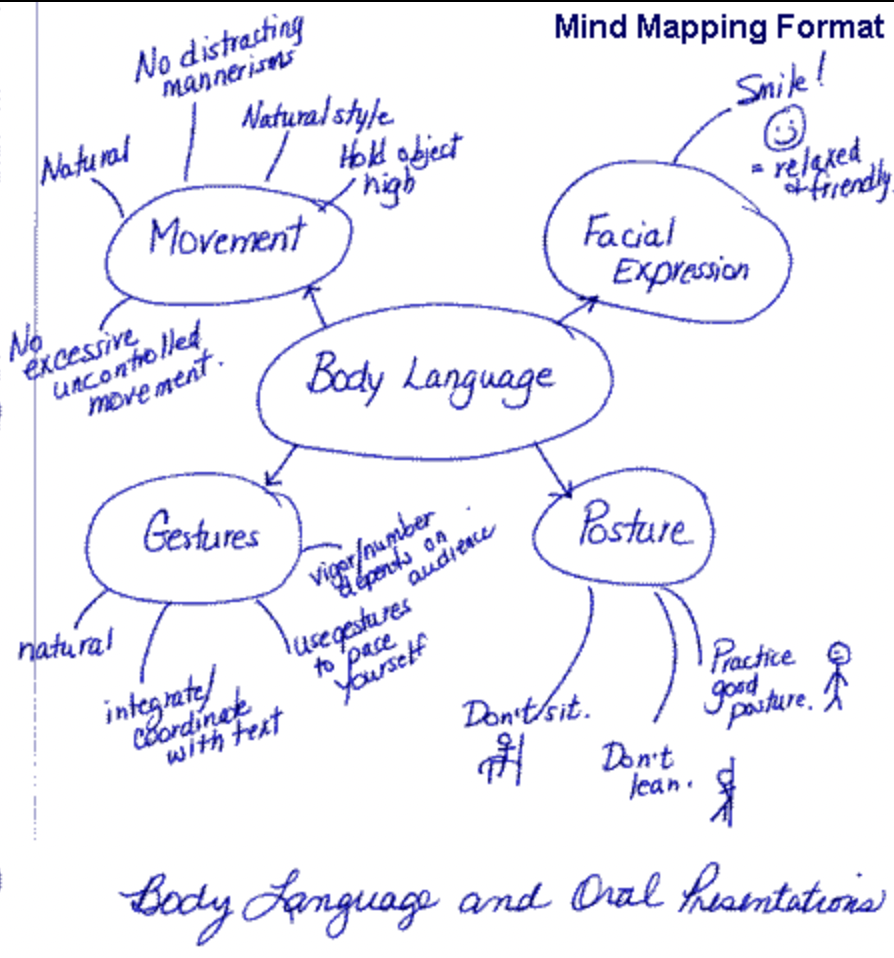 Mind Mapping Format
No distracting
mannerisms
Natural style
Natural
Hold object
high
Movement
No
excessive
uncontrolled
movement.
Smile!
= relaxed
& friendly
Facial
Expression
Body Language
Gestures
vigor/number
depends on
audience
natural
integrate/
coordinate
with text
use gestures
to pace
yourself
Posture
Don't sit.
Don't
lean.
Practice
good
posture.
Body Language and Oral Presentations